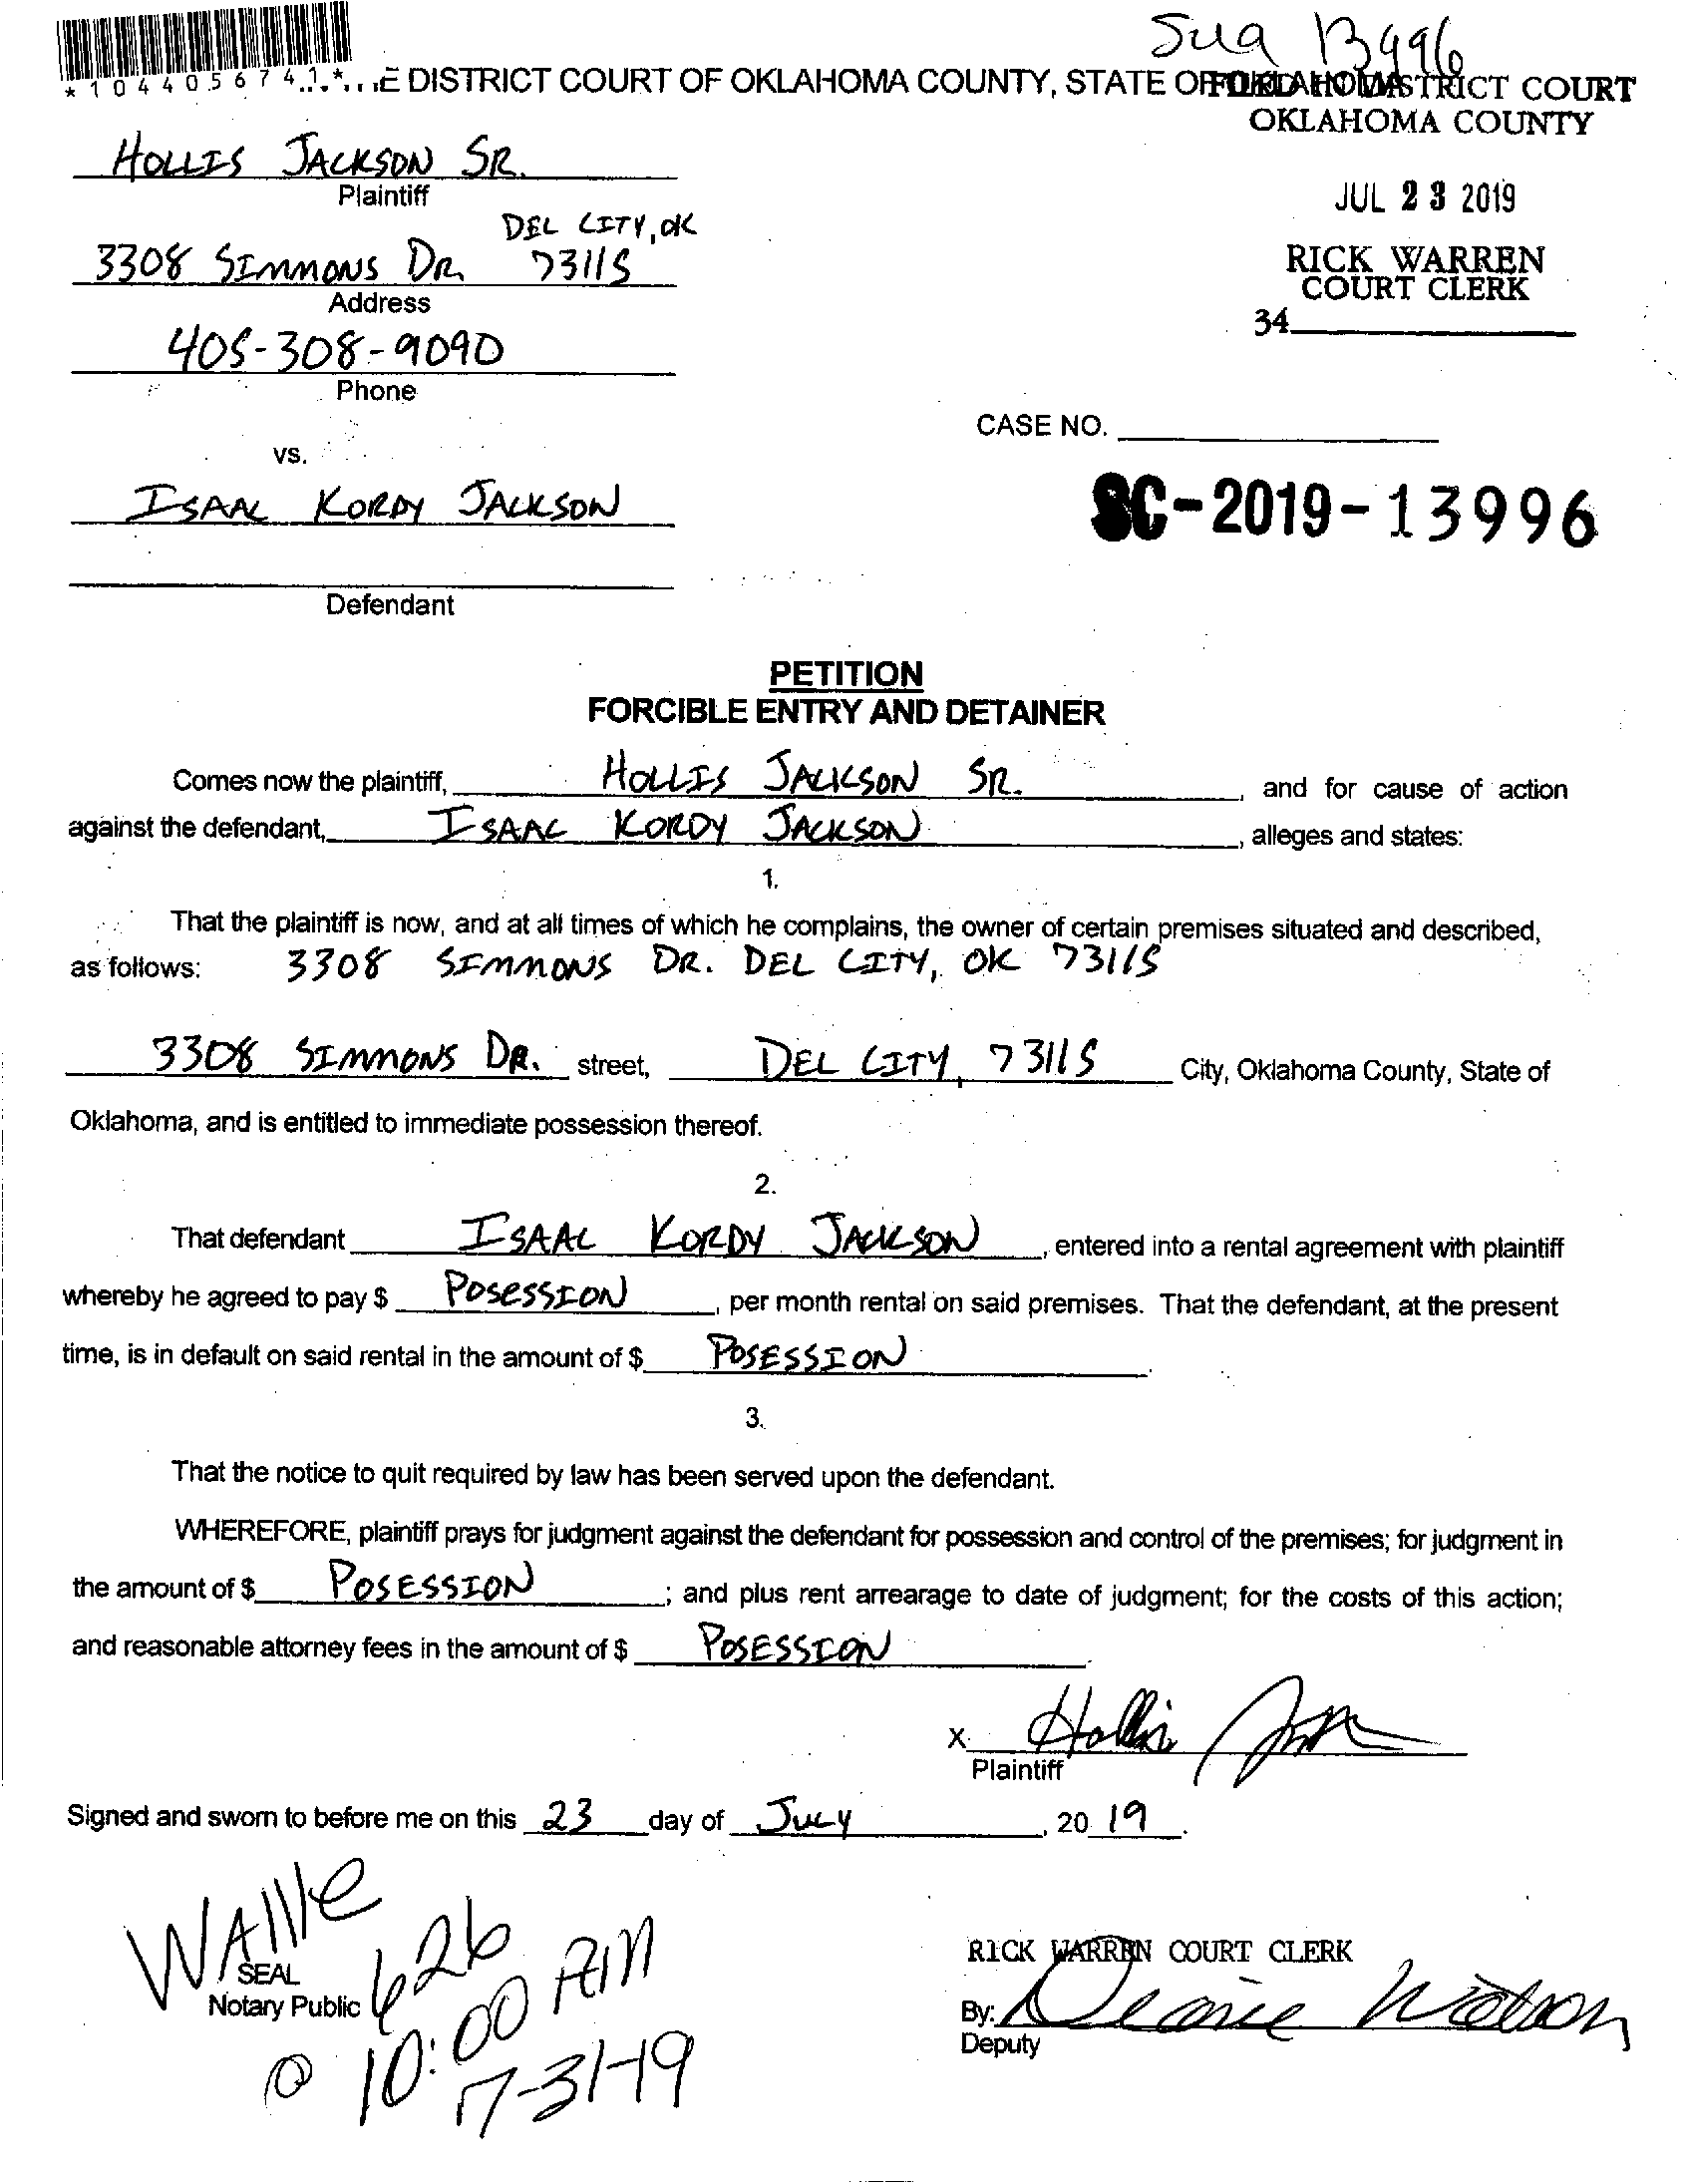 Sua 13996
*1044056741* E DISTRICT COURT OF OKLAHOMA COUNTY, STATE OF OKLAHOMA
FILED IN DISTRICT COURT
OKLAHOMA COUNTY
HOLLIS JACKSON SR.
Plaintiff
JUL 23 2019
DEL CITY, OK
3308 SIMMONS DR. 73115
Address
RICK WARREN
COURT CLERK
34
405-308-9090
Phone
CASE NO.
vs.
ISAAC KORDY JACKSON
SC-2019-13996
Defendant
PETITION
FORCIBLE ENTRY AND DETAINER
Comes now the plaintiff, HOLLIS JACKSON SR. , and for cause of action
against the defendant, ISAAC KORDY JACKSON , alleges and states:
1.
That the plaintiff is now, and at all times of which he complains, the owner of certain premises situated and described,
as follows: 3308 SIMMONS DR. DEL CITY, OK 73115
3308 SIMMONS DR. street, DEL CITY, 73115 City, Oklahoma County, State of
Oklahoma, and is entitled to immediate possession thereof.
2.
That defendant ISAAC KORDY JACKSON , entered into a rental agreement with plaintiff
whereby he agreed to pay $ POSESSION , per month rental on said premises. That the defendant, at the present
time, is in default on said rental in the amount of $ POSESSION .
3.
That the notice to quit required by law has been served upon the defendant.
WHEREFORE, plaintiff prays for judgment against the defendant for possession and control of the premises; for judgment in
the amount of $ POSESSION ; and plus rent arrearage to date of judgment; for the costs of this action;
and reasonable attorney fees in the amount of $ POSESSION .
X Hollis
Plaintiff
Signed and sworn to before me on this 23 day of JULY , 20 19 .
WAllle
SEAL
Notary Public
626
@ 10:00 AM
7-31-19
RICK WARREN COURT CLERK
By: Deanie Watson
Deputy